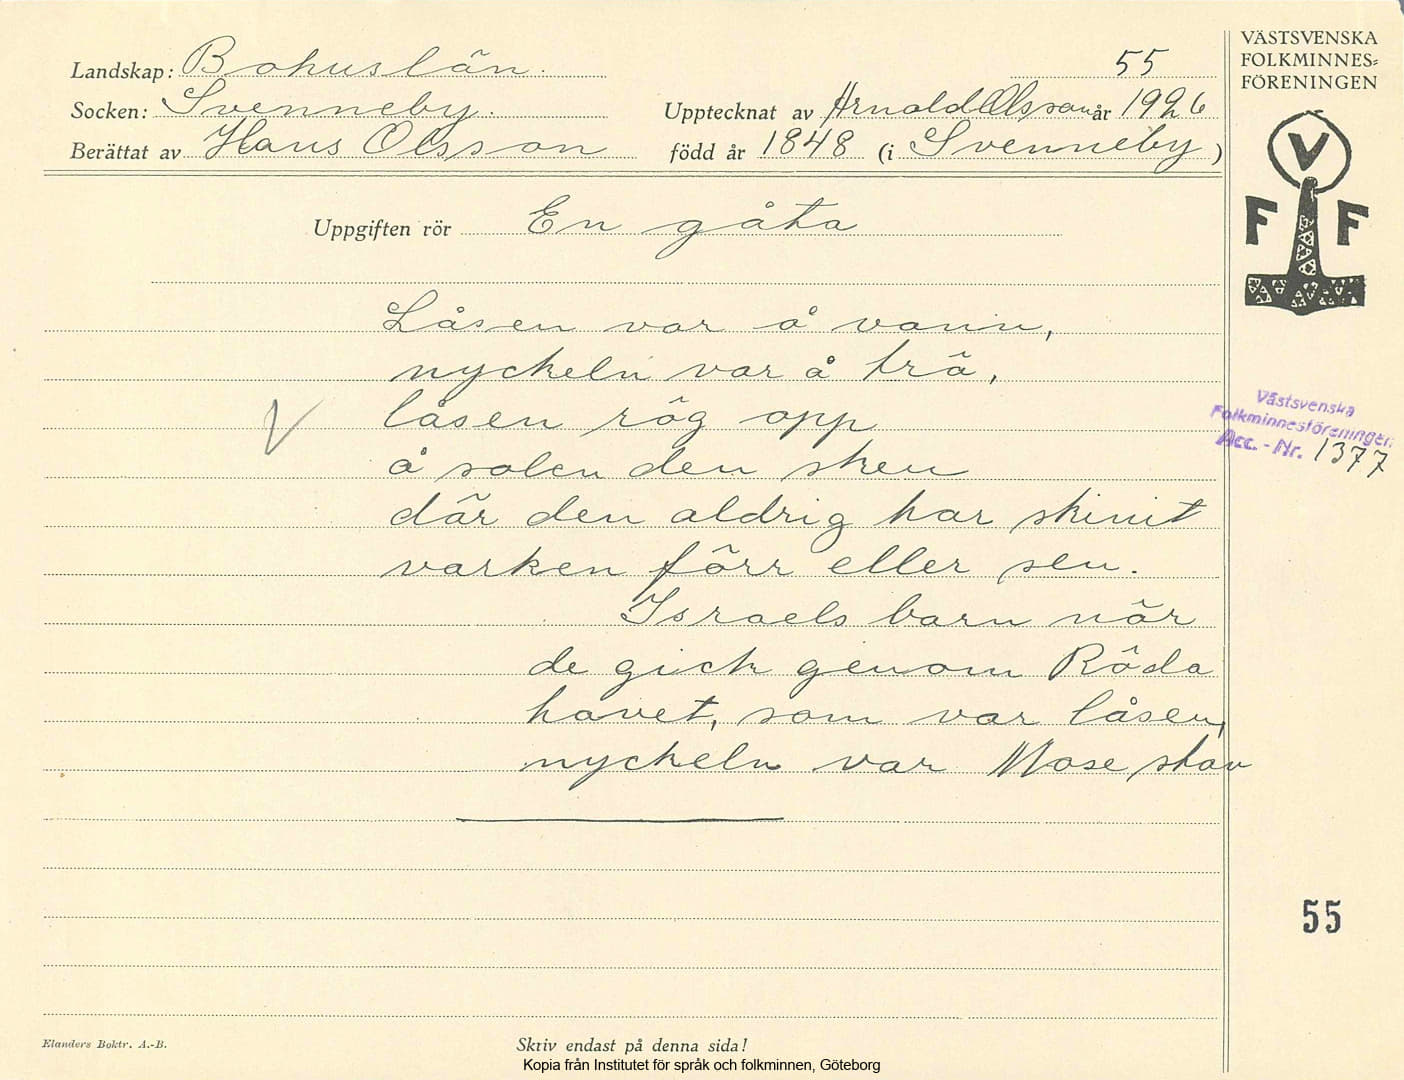 Landskap: Bohuslän. 55
Socken: Svenneby. Upptecknat av Arnold Olsson år 1926
Berättat av Hans Olsson född år 1848 (i Svenneby)
VÄSTSVENSKA
FOLKMINNES=
FÖRENINGEN
V
F F
Uppgiften rör En gåta
Låsen var å vann,
nyckeln var å trä,
låsen rög opp
å solen den sken
där den aldrig har skinit
varken förr eller sen.
Israels barn när
de gick genom Röda
havet, som var låsen,
nyckeln var Mose stav
V
Västsvenska
Folkminnesföreningen
Acc. - Nr. 1377
55
Elanders Boktr. A.-B.
Skriv endast på denna sida!
Kopia från Institutet för språk och folkminnen, Göteborg